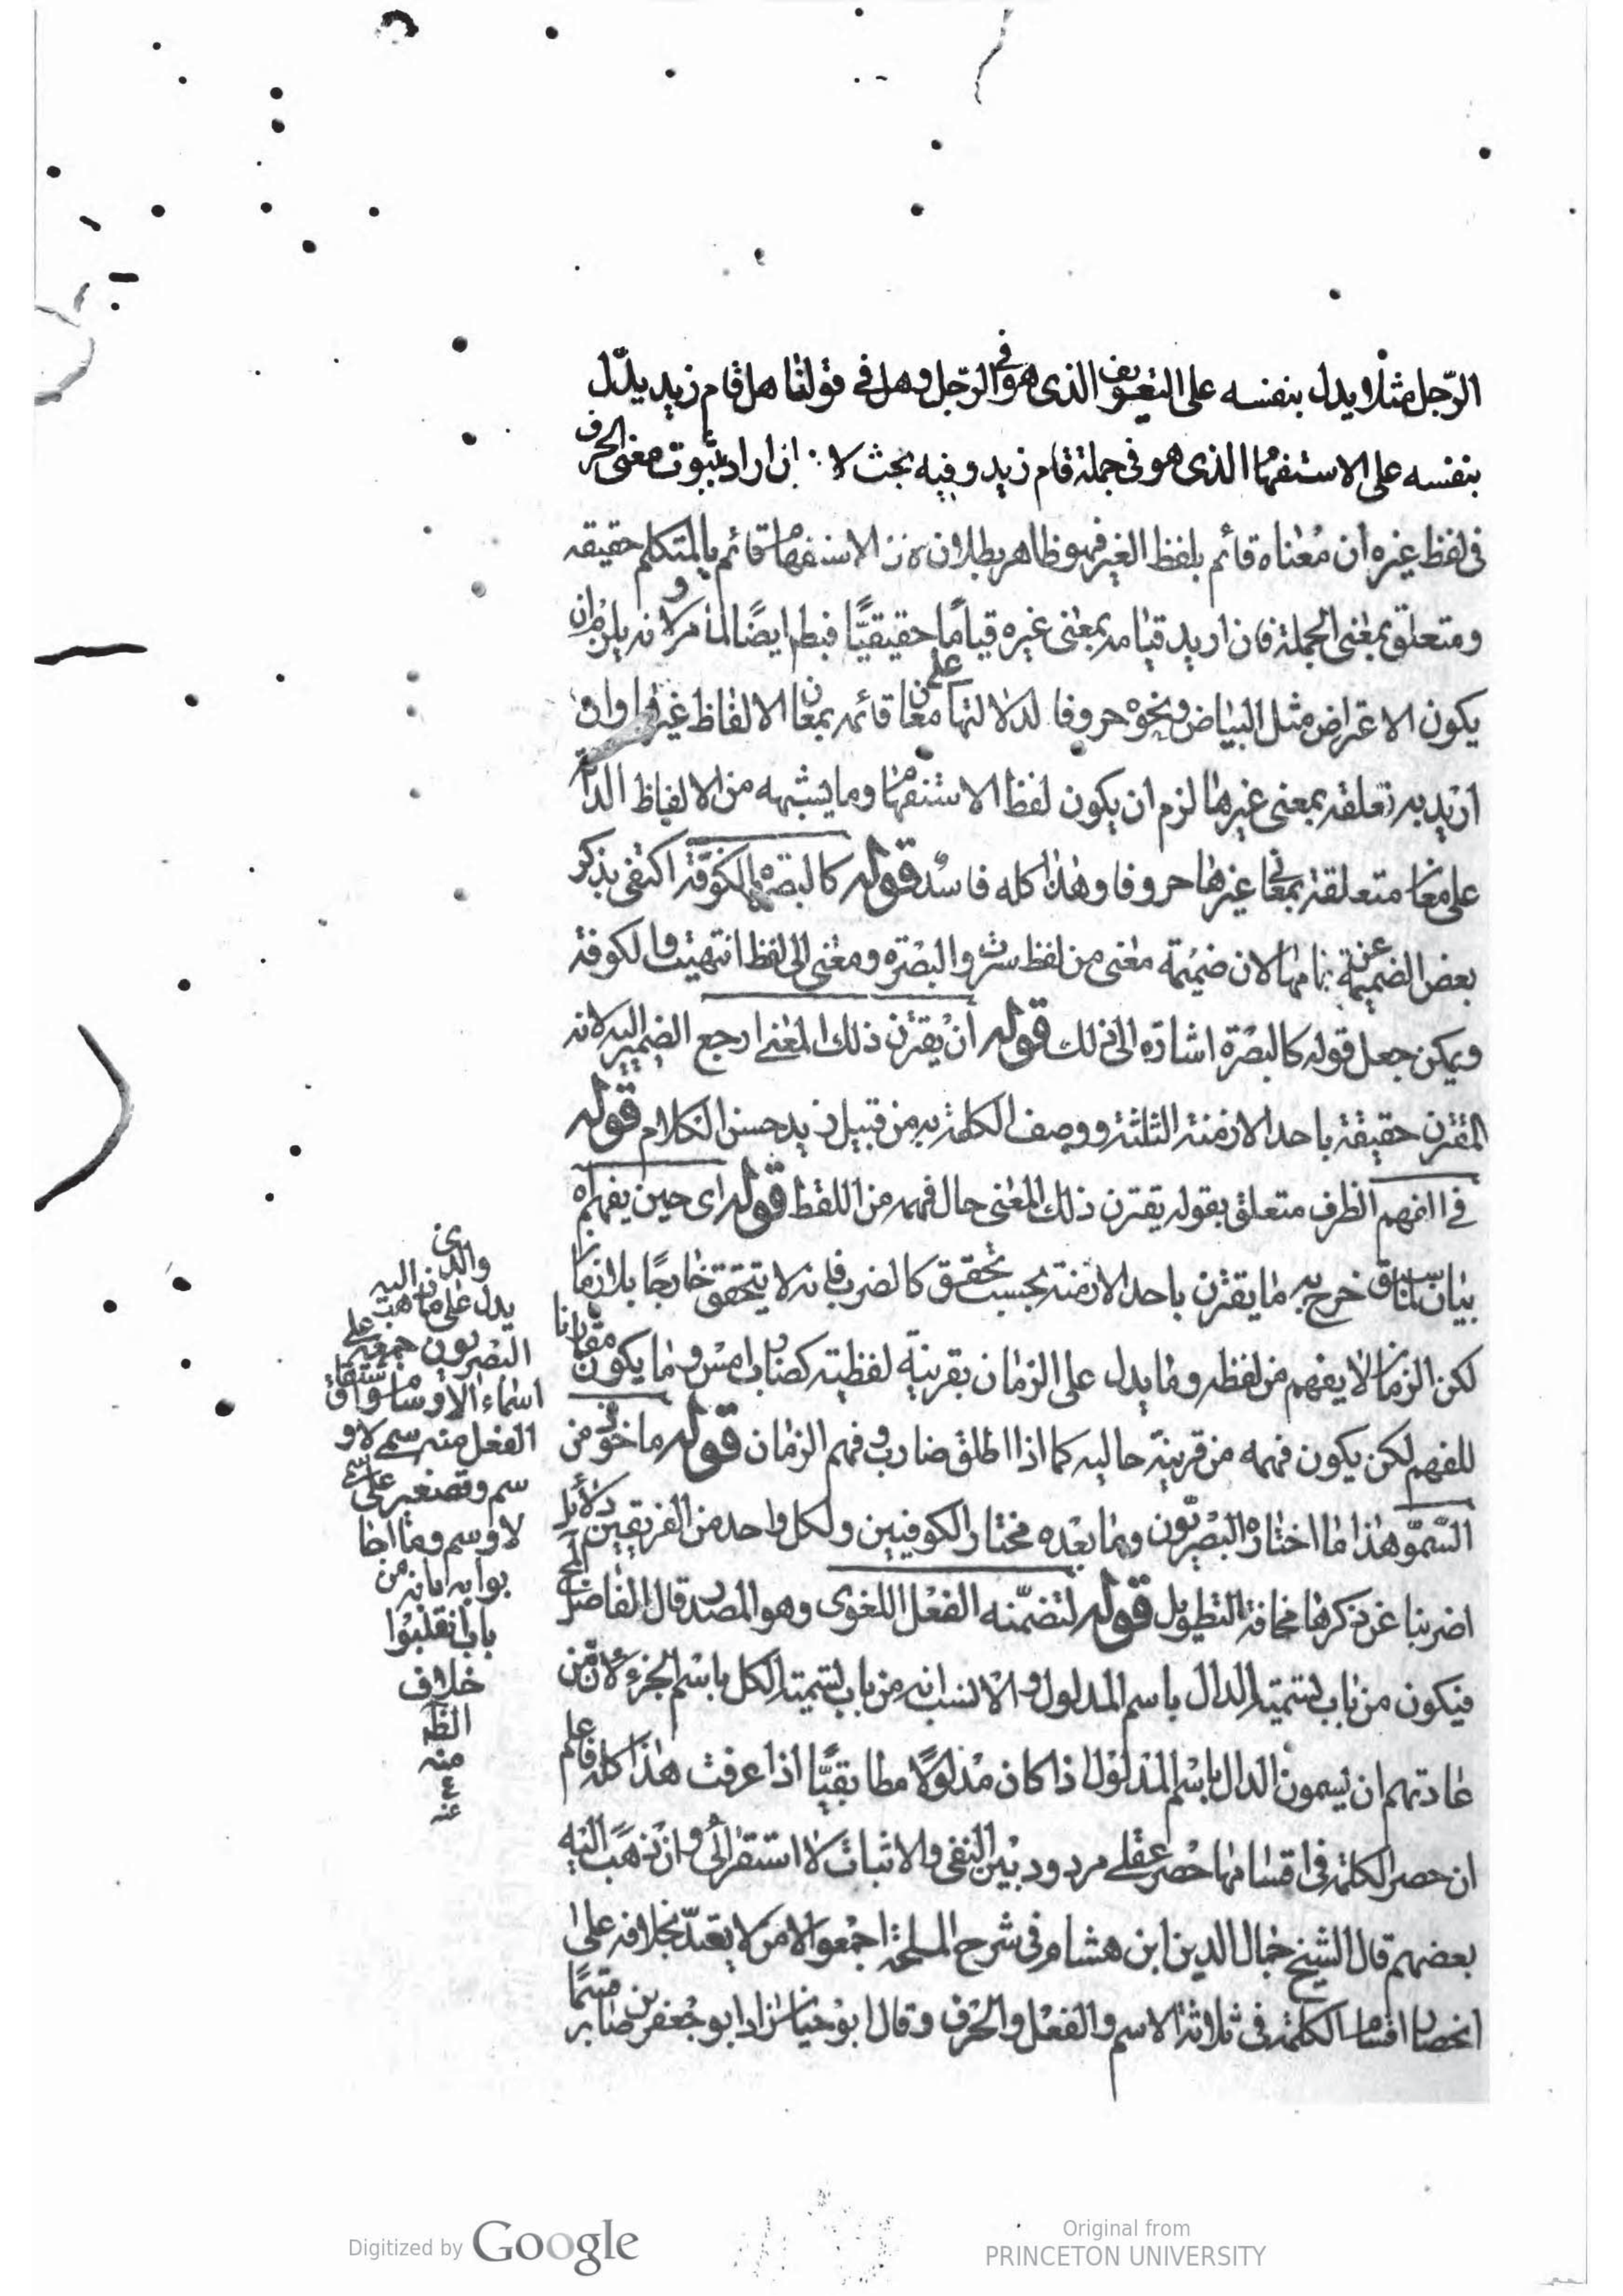 الرّجل مثلا يدل بنفسه على التعريف الذى هو فى الرّجل وهل فى قولنا هل قام زيد يدلّ
بنفسه على الاستفهام الذى هو فى جملة قام زيد وفيه بحث لا ان اراد بثبوت معنى الحرف
فى لفظ غيره ان معناه قائم بلفظ الغير فهو ظاهر بطلانه لان الاستفهام قائم بالمتكلم حقيقه
ومتعلق بمعنى الجملة فان اريد قيامه بمعنى غيره قيامًا حقيقيًّا فبطل ايضًا لما مر لانه يلزم ان
يكون الاعراض مثل البياض ونحوه حروفا لدلالتها على معان قائمه بمعان الالفاظ غيرها وان
اريد به تعلقه بمعنى غيرها لزم ان يكون لفظ الاستفهام وما يشبهه من الالفاظ الدالة
على معان متعلقة بمعانى غيرها حروفا وهذا كله فاسد قوله كالبصرة والكوفة اكتفى بذكر
بعض الضميمة عن تمامها لان ضميمة معنى من لفظ سرت والبصرة ومعنى الى لفظ انتهيت والكوفة
ويمكن جعل قوله كالبصرة اشارة الى ذلك قوله ان يقترن ذلك المعنى ارجع الضمير اليه لانه
المقترن حقيقة باحد الازمنة الثلثة ووصف الكلمة به من قبيل زيد حسن الكلام قوله
فى الفهم الظرف متعلق بقوله يقترن ذلك المعنى حال فهمه من اللفظ قوله اى حين يفهم
بيان لما سبق خرج به ما يقترن باحد الازمنة بحسب تحقق كالضرب فانه لا يتحقق خارجًا بلا زمان
لكن الزمان لا يفهم من لفظه وما يدل على الزمان بقرينة لفظية كضارب امس وما يكون مقارنا
للفهم لكن يكون فهمه من قرينة حاليه كما اذا اطلق ضارب وفهم الزمان قوله ماخوذ من
السّموّ هذا ما اختاره البصريّون وما بعده مختار الكوفيين ولكل واحد من الفريقين دلائل
اضربنا عن ذكرها مخافة التطويل قوله لتضمّنه الفعل اللغوى وهو المصدر قال الفاضل
فيكون من باب تسمية الدال باسم المدلول والانسب انه من باب تسمية الكل باسم الجزء لان من
عادتهم ان يسمون الدال باسم المدلول اذا كان مدلولًا مطابقيًّا اذا عرفت هذا كله فاعلم
ان حصر الكلمة فى اقسامها حصر عقلى مردود بين النفى والاثبات لا استقرائى وان ذهب اليه
بعضهم قال الشيخ جمال الدين ابن هشام فى شرح الملحة اجمعوا الا من لا يعتدّ بخلافه على
انحصار اقسام الكلمة فى ثلاثة الاسم والفعل والحرف وقال ابو حيان زاد ابو جعفر بن صابر قسمًا
والذى
يدل على ما ذهب اليه
البصريون جمعه على
اسماء
الفعل منه سميت لا و
سمت وتصغيره على سمى
لا وسيم وما اجا
بوا به انه من
باب القلب
خلاف
الظ
منه
عنه
Digitized by Google
Original from
PRINCETON UNIVERSITY